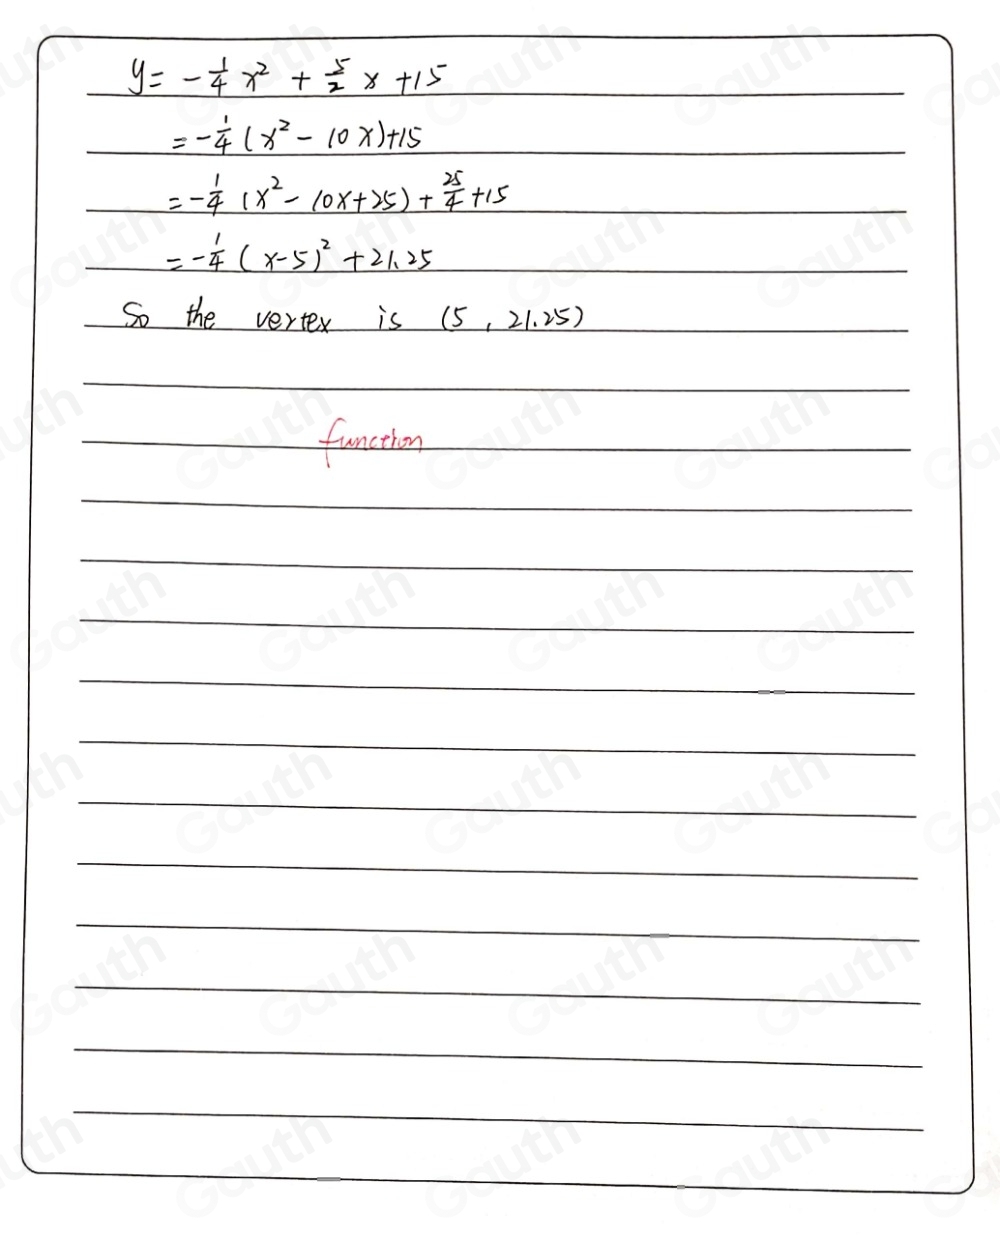 y = -1/4 x² + 5/2 x + 15
= -1/4 (x² - 10x) + 15
= -1/4 (x² - 10x + 25) + 25/4 + 15
= -1/4 (x - 5)² + 21.25
So the vertex is (5, 21.25)
function
Gauth